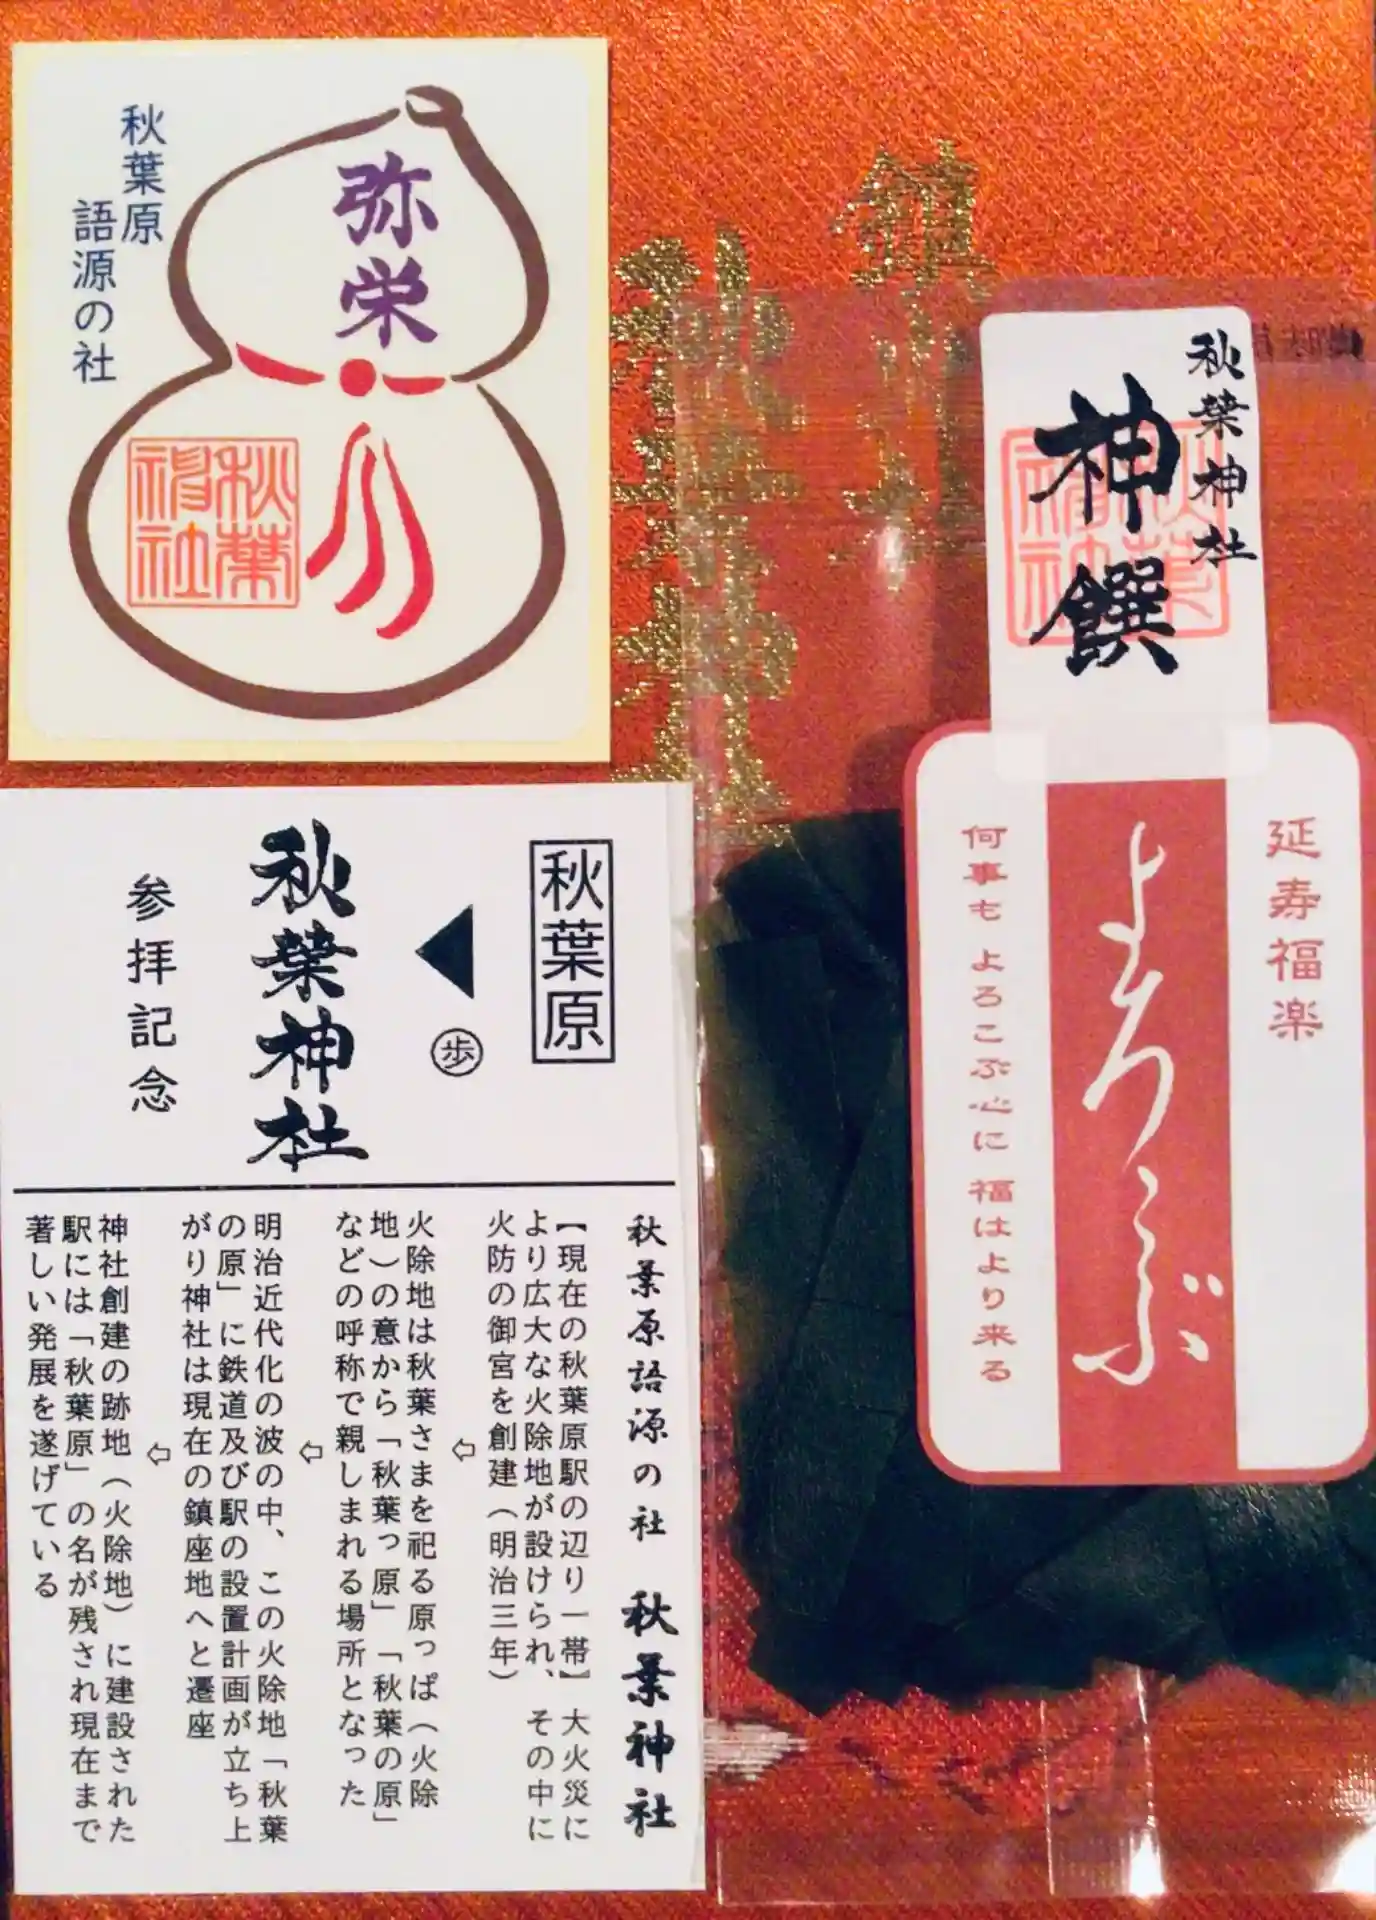 秋葉原
語源の社
弥栄
秋葉
神社
鎮
秋葉神社
神饌
延寿福楽
よろこぶ
何事も よろこぶ心に 福はより来る
秋葉原
歩
秋葉神社
参拝記念
秋葉原語源の社 秋葉神社
【現在の秋葉原駅の辺り一帯】大火災に
より広大な火除地が設けられ、その中に
火防の御宮を創建(明治三年)
火除地は秋葉さまを祀る原っぱ(火除
地)の意から「秋葉っ原」「秋葉の原」
などの呼称で親しまれる場所となった
明治近代化の波の中、この火除地「秋葉
の原」に鉄道及び駅の設置計画が立ち上
がり神社は現在の鎮座地へと遷座
神社創建の跡地(火除地)に建設された
駅には「秋葉原」の名が残され現在まで
著しい発展を遂げている